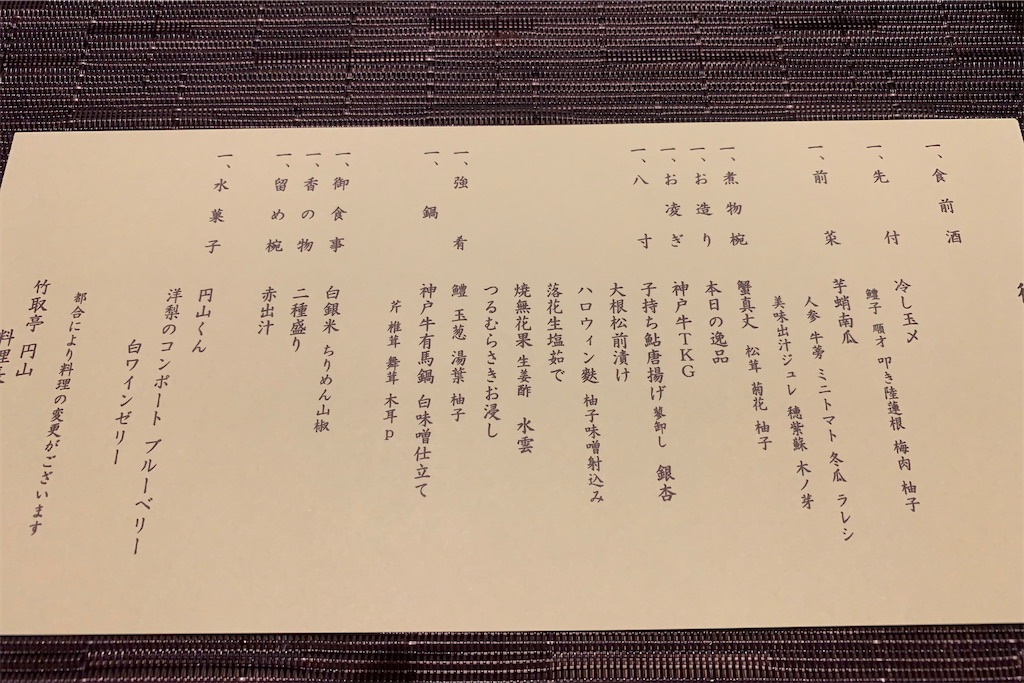 一、食前酒
一、先付
冷し玉〆
鱧子 順才 叩き陸蓮根 梅肉 柚子
一、前菜
芋蛸南瓜
人参 牛蒡 ミニトマト 冬瓜 ラレシ
美味出汁ジュレ 穂紫蘇 木ノ芽
一、煮物椀
蟹真丈 松茸 菊花 柚子
一、お造り
本日の逸品
一、お凌ぎ
神戸牛TKG
一、八寸
子持ち鮎唐揚げ 蓼卸し 銀杏
大根松前漬け
ハロウィン麩 柚子味噌射込み
落花生塩茹で
焼無花果 生姜酢 水雲
つるむらさきお浸し
一、強肴
鱧 玉葱 湯葉 柚子
一、鍋
神戸牛有馬鍋 白味噌仕立て
芹 椎茸 舞茸 木耳p
一、御食事
白銀米 ちりめん山椒
一、香の物
二種盛り
一、留め椀
赤出汁
一、水菓子
円山くん
洋梨のコンポート ブルーベリー
白ワインゼリー
都合により料理の変更がございます
竹取亭 円山
料理長